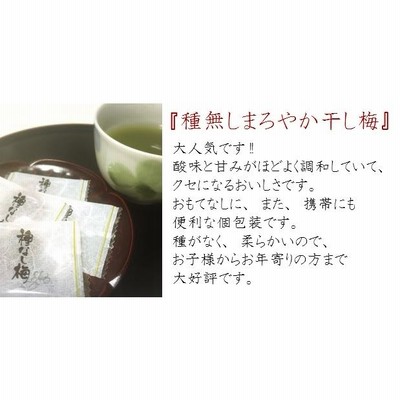 『種無しまろやか干し梅』
大人気です!!
酸味と甘みがほどよく調和していて、
クセになるおいしさです。
おもてなしに、また、携帯にも
便利な個包装です。
種がなく、柔らかいので、
お子様からお年寄りの方まで
大好評です。
種なし梅